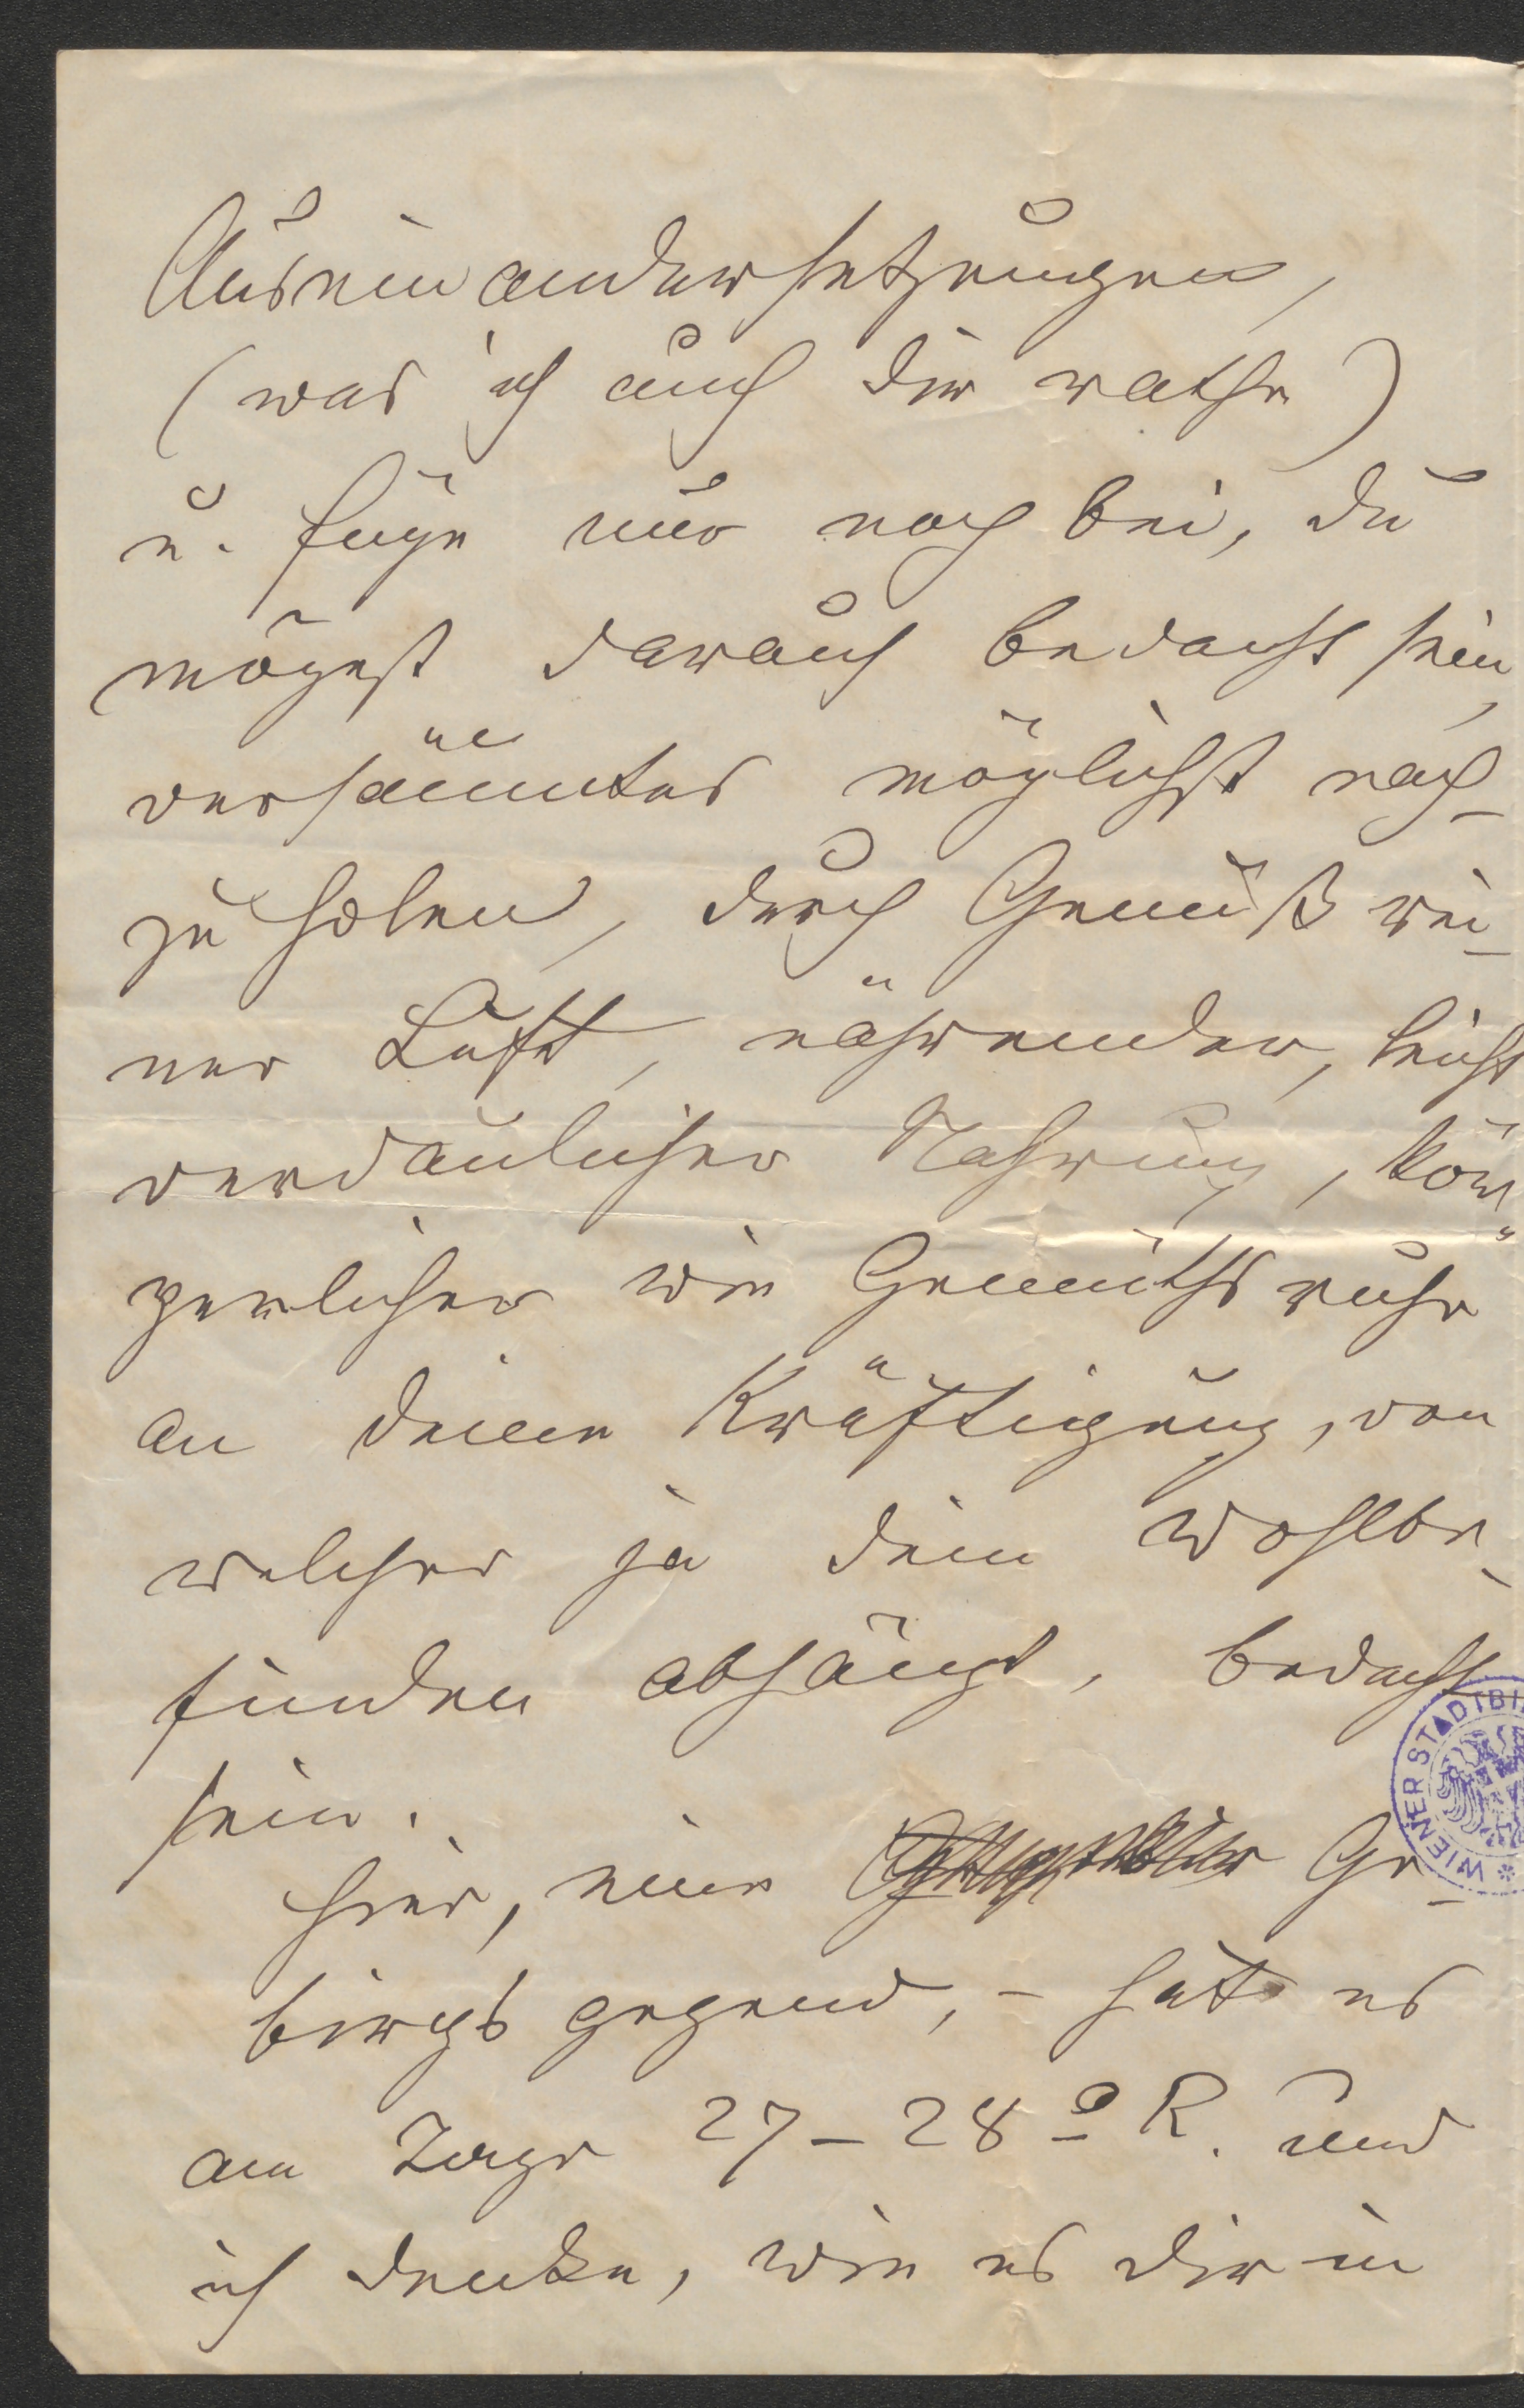 Auseinandersetzungen,
(was ich auch dir rathe)
u. füge nur noch bei, du
mögest darauf bedacht sein,
versäumtes möglichst nach-
zu holen, durch Genuß rei-
ner Luft, nährender, leicht
verdaulicher Nahrung, kör-
perlicher wie Gemüthsruhe
an deine Kräftigung, von
welcher ja dein Wohlbe-
finden abhängt, bedacht
sein.
Hier, eine Ge-
birgsgegend, - hat es
am Tage 27-28º R. und
ich denke, wie es dir in
WIENER STADTBI